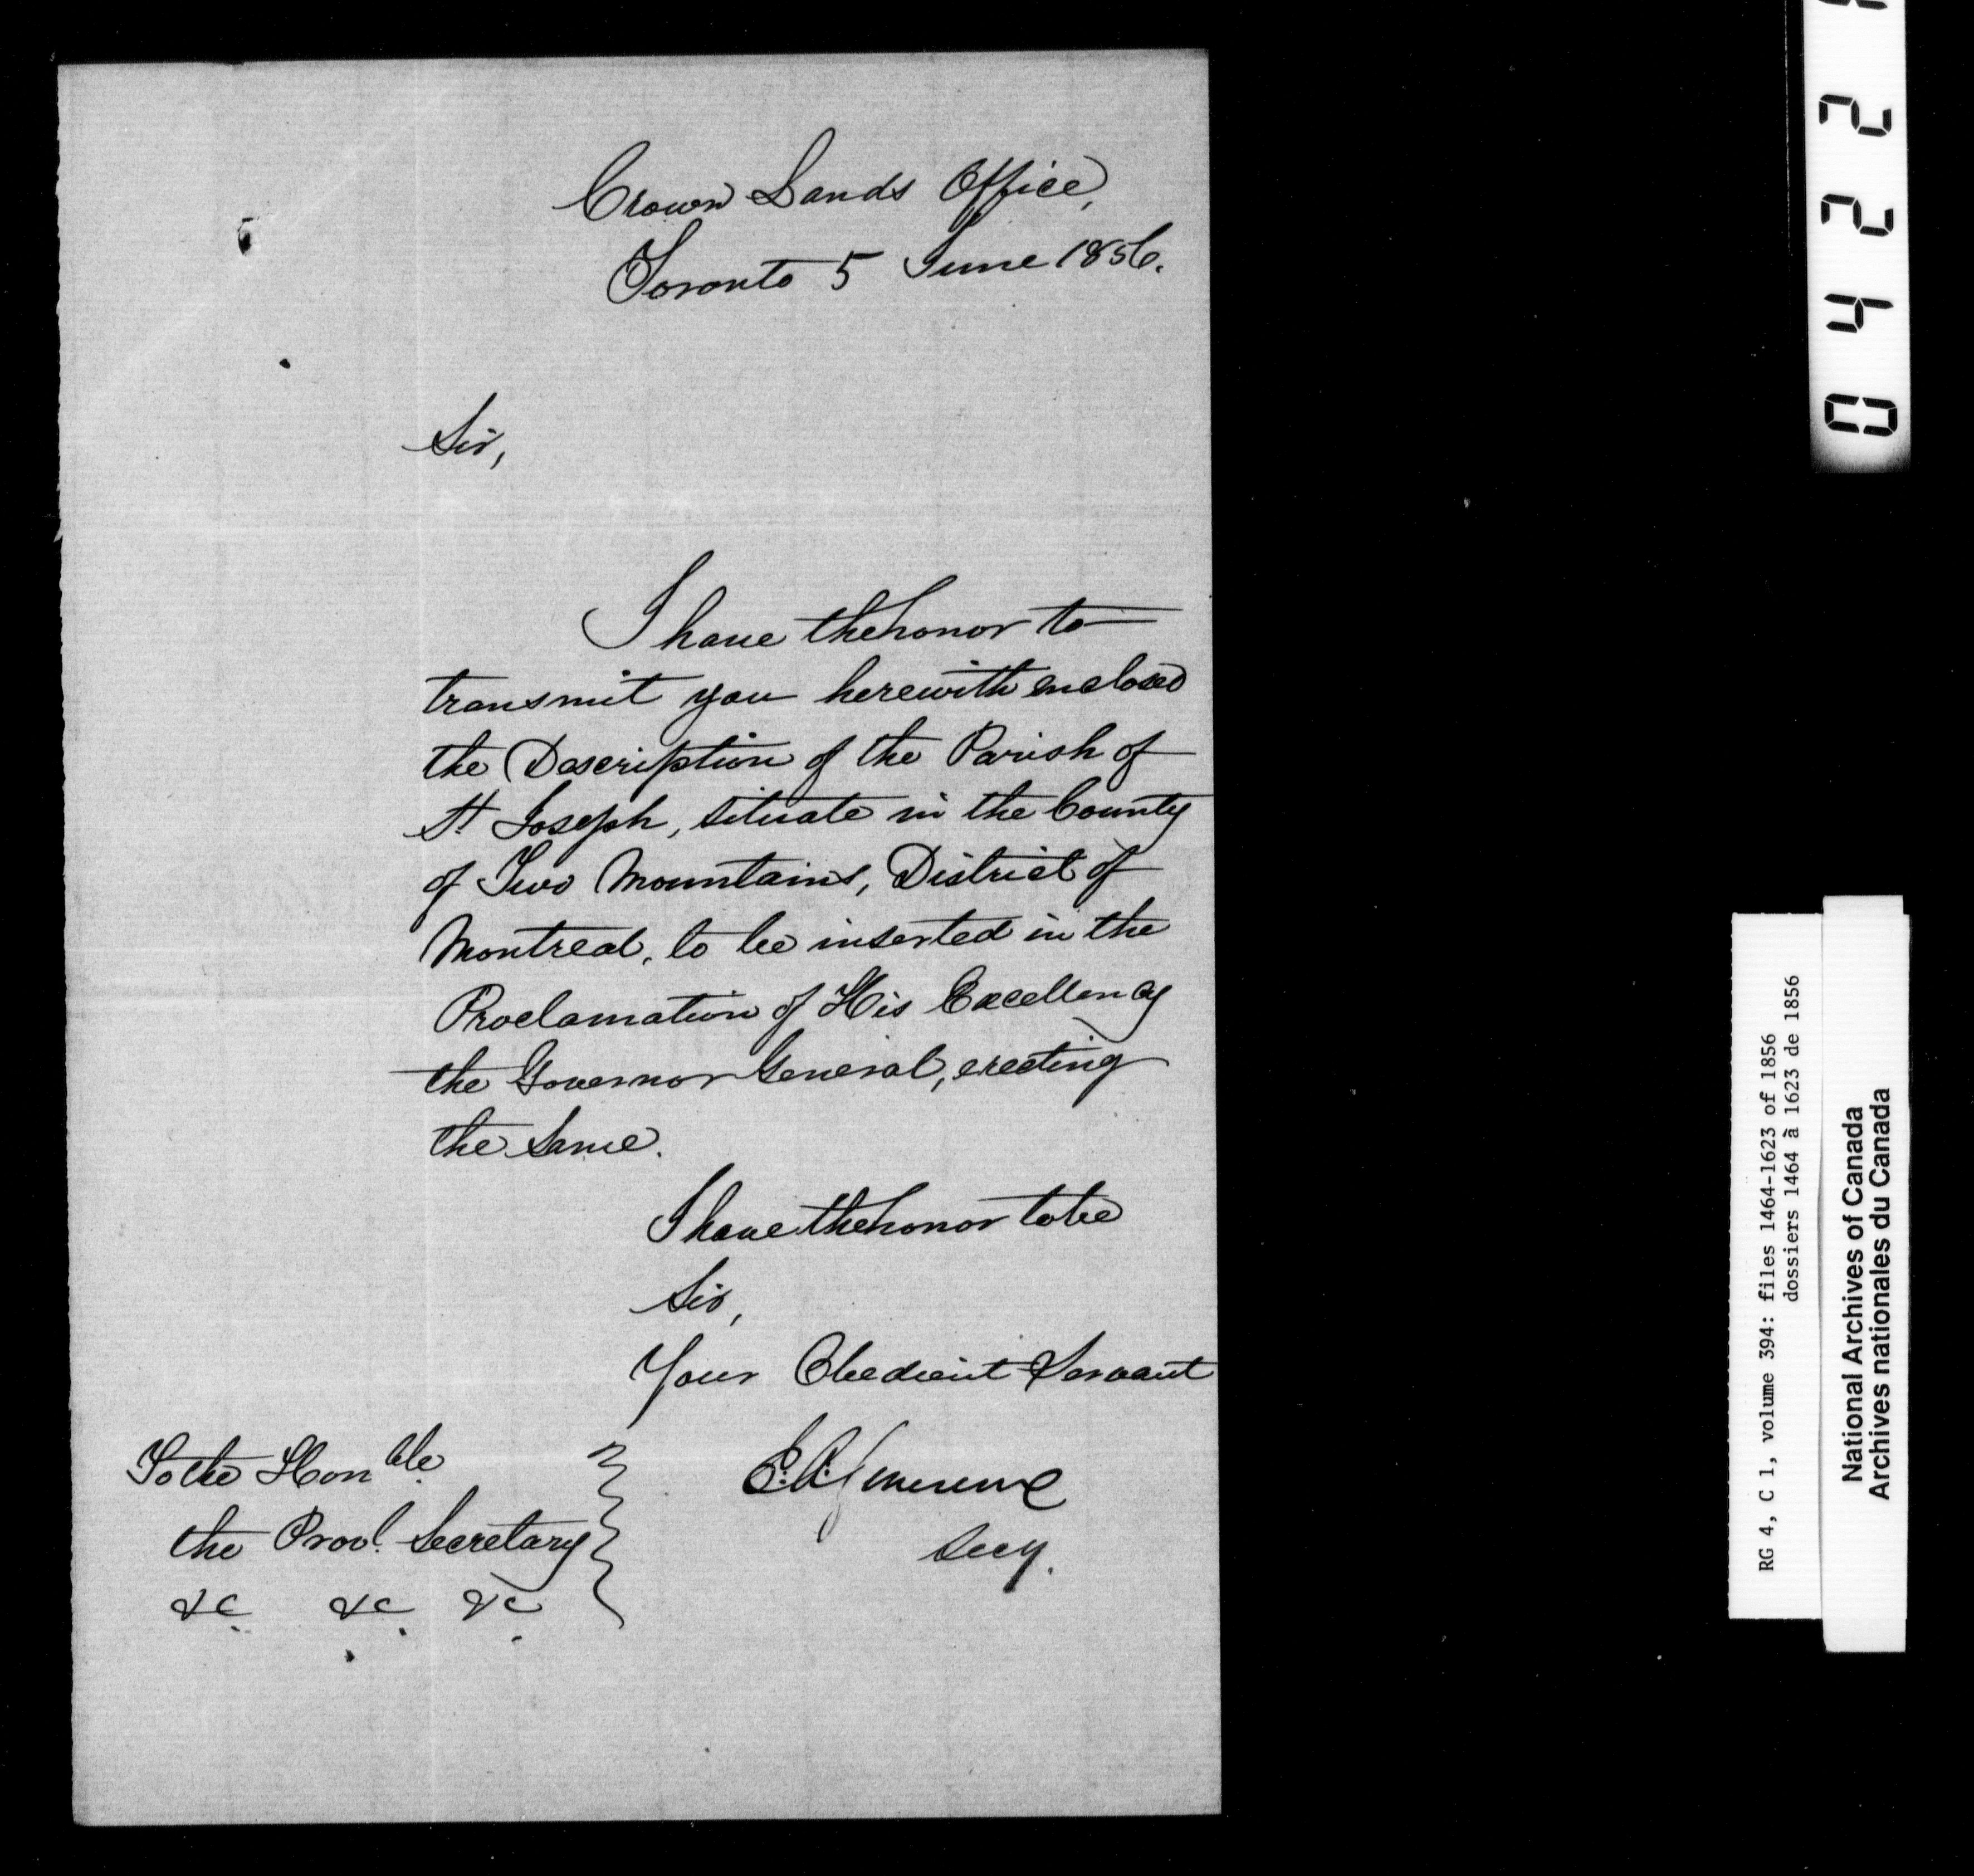 Crown Lands Office,
Toronto 5 June 1856.
Sir,
I have the honor to
transmit you herewith enclosed
the Description of the Parish of
St Joseph, situate in the County
of Two Mountains, District of
Montreal, to be inserted in the
Proclamation of His Excellency
the Governor General, erecting
the same.
I have the honor to be
Sir,
Your Obedient Servant
To the Honble
the Provl. Secretary
&c &c &c
Secy.
0422
RG 4, C 1, volume 394: files 1464-1623 of 1856
dossiers 1464 à 1623 de 1856
National Archives of Canada
Archives nationales du Canada